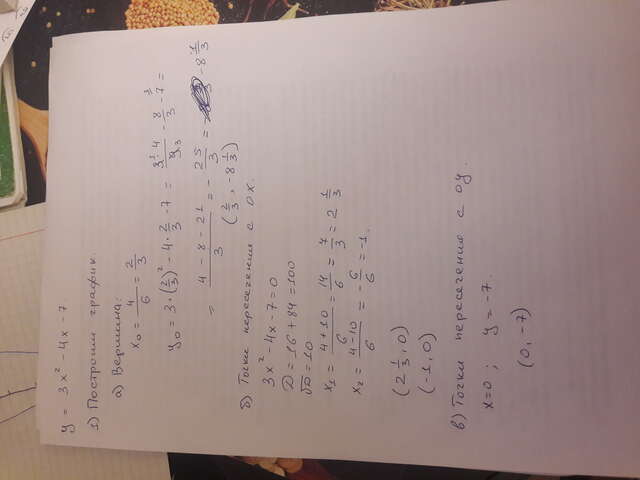 y = 3x² - 4x - 7
1) Построим график.
а) Вершина:
x₀ = 4/6 = 2/3
y₀ = 3·(2/3)² - 4·2/3 - 7 = 3·4/9 - 8/3 - 7 =
= (4 - 8 - 21)/3 = - 25/3 = - 8 1/3
(2/3, -8 1/3)
б) Точки пересечения с OX.
3x² - 4x - 7 = 0
D = 16 + 84 = 100
√D = 10
x₁ = (4+10)/6 = 14/6 = 7/3 = 2 1/3
x₂ = (4-10)/6 = -6/6 = -1.
(2 1/3, 0)
(-1, 0)
в) Точки пересечения с OY.
x=0 ; y = -7.
(0, -7)